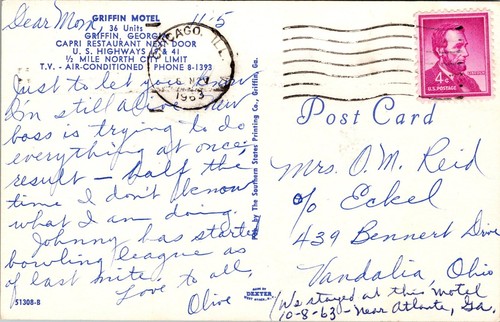 Dear Mom, 11/5
GRIFFIN MOTEL
36 Units
GRIFFIN, GEORGIA
CAPRI RESTAURANT NEXT DOOR
U. S. HIGHWAYS & 41
½ MILE NORTH CITY LIMIT
T.V. - AIR-CONDITIONED PHONE 8-1393
Just to let you know
I'm still alive new
boss is trying to do
everything at once
result - half the
time I don't know
what I am doing.
Johnny has started
bowling league as
of last nite.
Love to all,
Olive
51308-B
Pub. by The Southern States Printing Co., Griffin, Ga.
DEXTER
CHICAGO, ILL
NOV
1963
4¢
U.S. POSTAGE
Post Card
Mrs. O. M. Reid
c/o Eckel
439 Bennert Drive
Vandalia, Ohio
(We stayed at this motel
10-8-63 - near Atlanta, Ga.